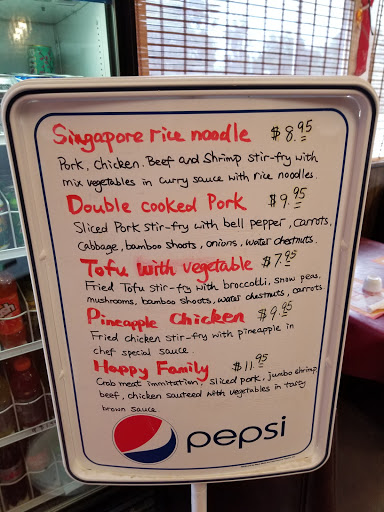 Singapore rice noodle $8.95
Pork, chicken. Beef and Shrimp stir-fry with
mix vegetables in curry sauce with rice noodles.
Double cooked Pork $9.95
Sliced Pork stir-fry with bell pepper, carrots,
Cabbage, bamboo shoots, onions, water chestnuts.
Tofu with vegetable $7.95
Fried Tofu stir-fry with broccolli, snow peas,
mushrooms, bamboo shoots, water chestnuts, carrots.
Pineapple Chicken $9.95
Fried chicken stir-fry with pineapple in
chef special sauce.
Happy Family $11.95
Crab meat immitation, sliced pork, jumbo shrimp,
beef, chicken sauteed with vegetables in tasty
brown sauce
pepsi